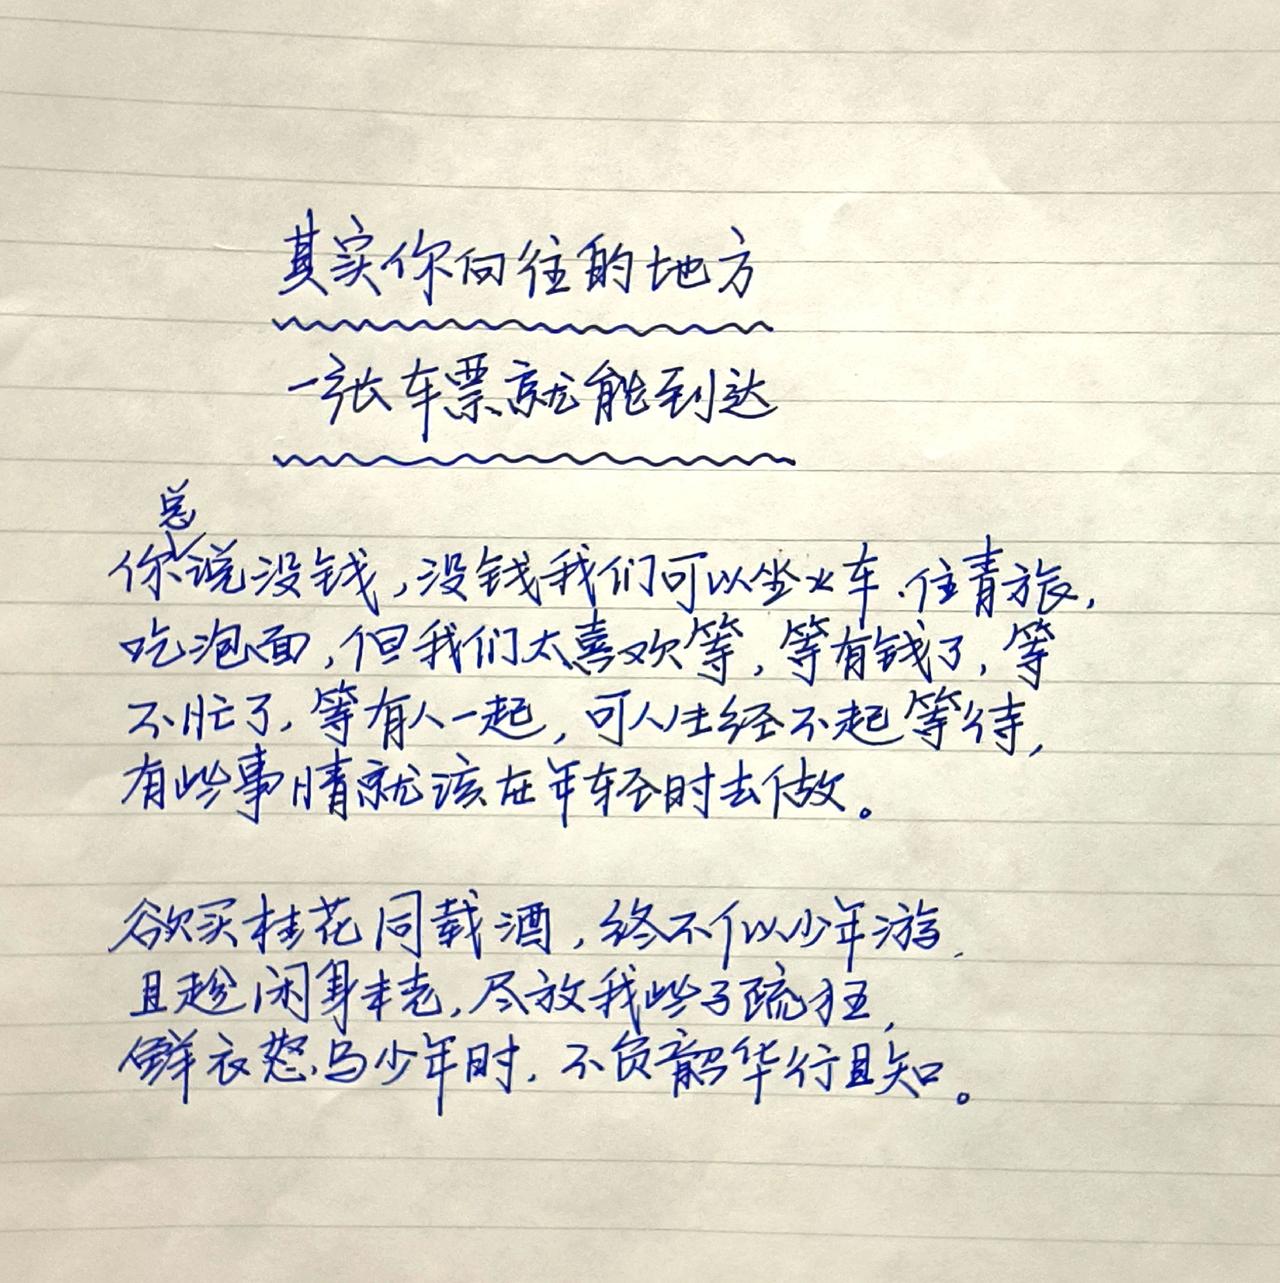 其实你向往的地方
一张车票就能到达
你总说没钱,没钱我们可以坐火车.住青旅,
吃泡面,但我们太喜欢等,等有钱了,等
不忙了,等有人一起,可人生经不起等待,
有些事情就该在年轻时去做。
欲买桂花同载酒,终不似少年游.
且趁闲身未老,尽放我些子疏狂,
鲜衣怒马少年时,不负韶华行且知。